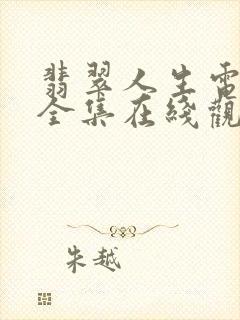 翡翠人生電
全集在綫觀
朱越